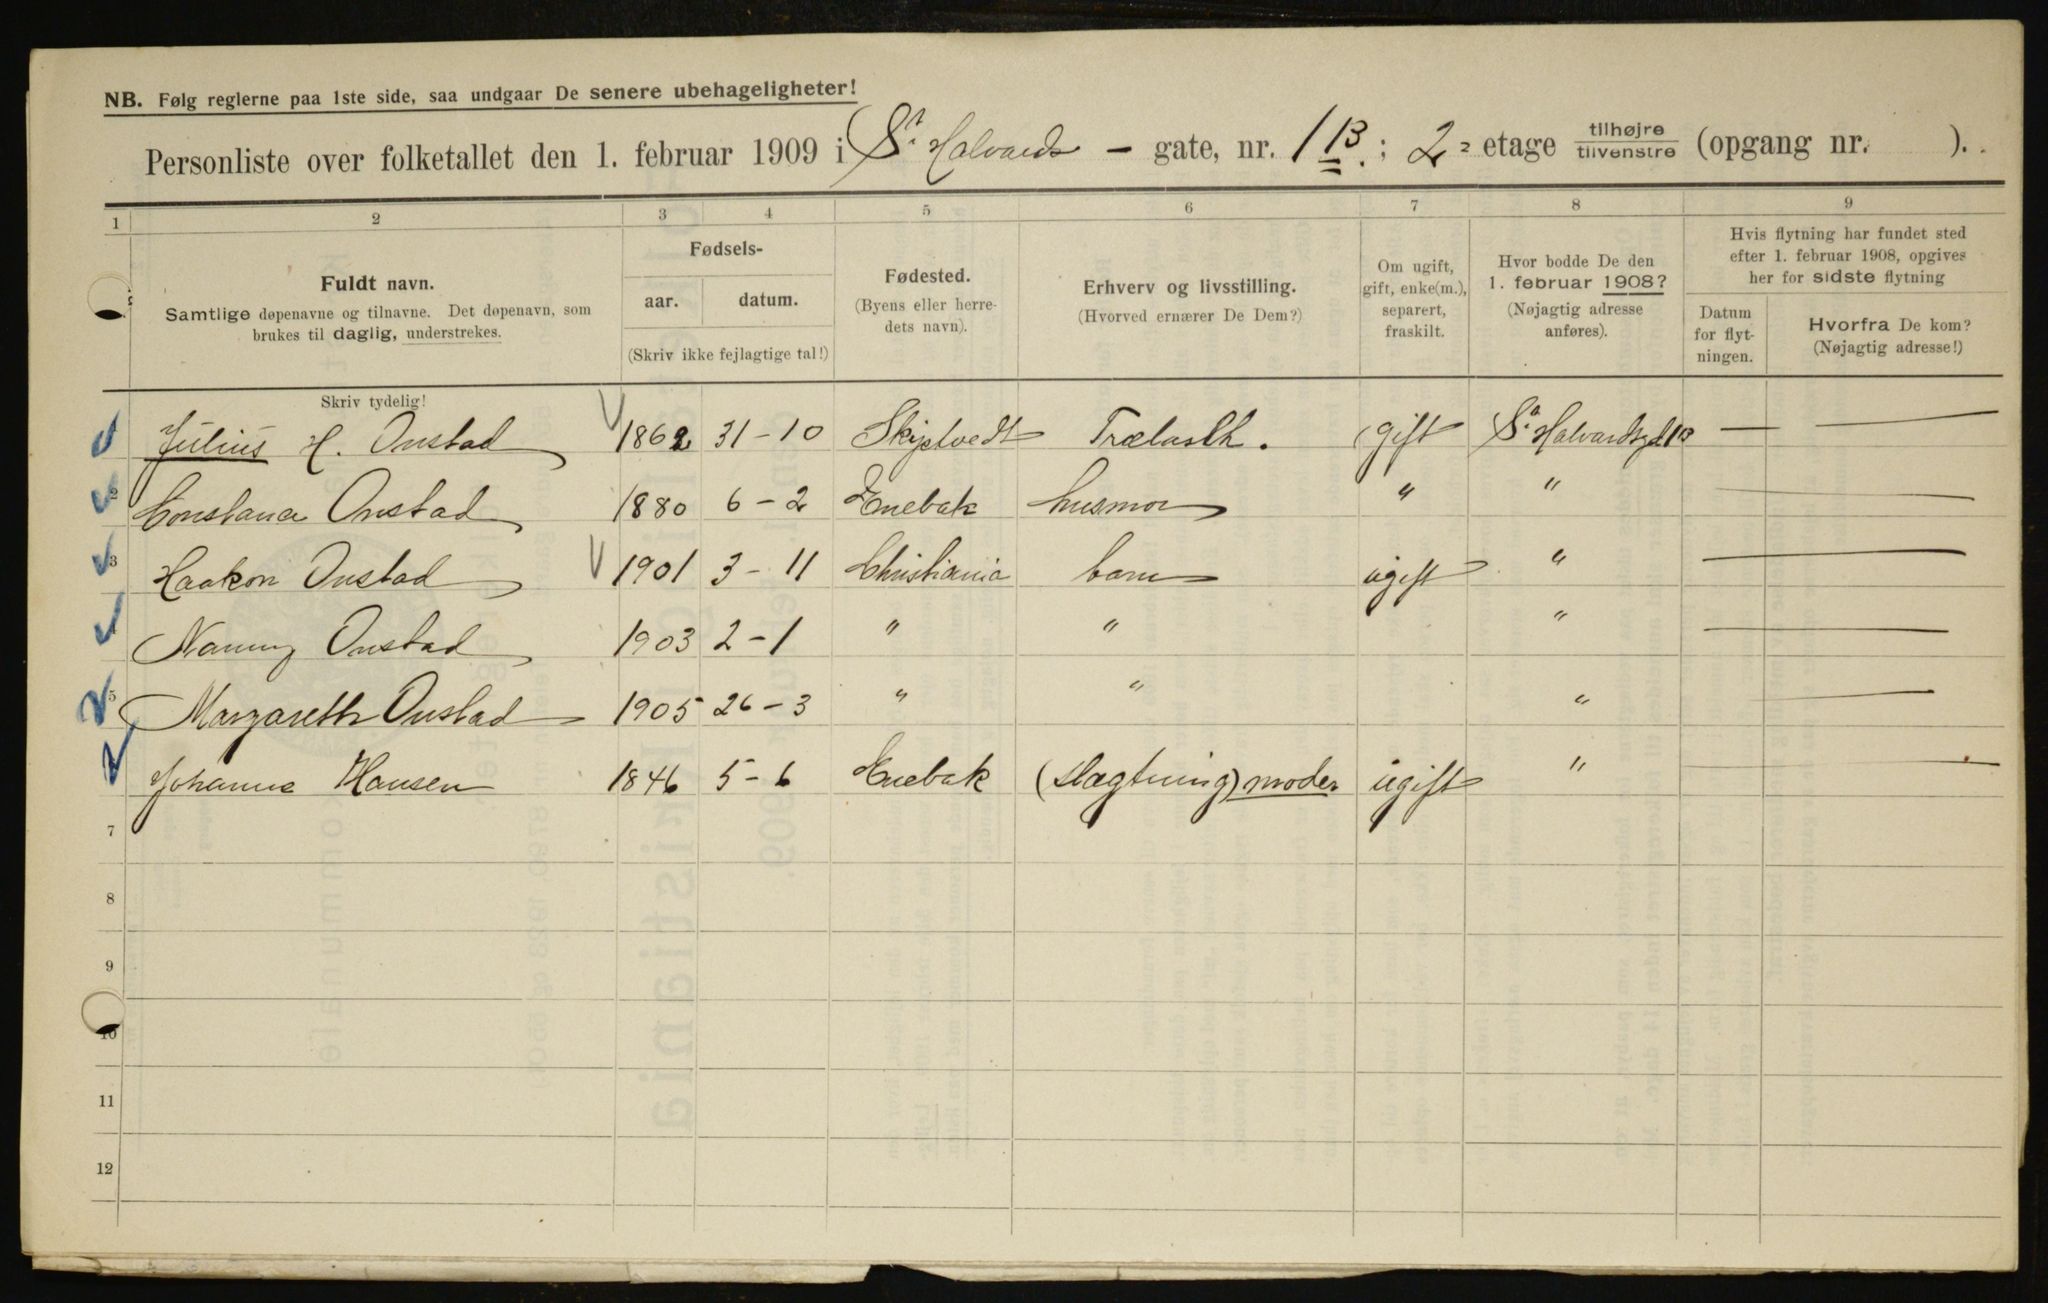 NB. Følg reglerne paa 1ste side, saa undgaar De senere ubehageligheter!
Personliste over folketallet den 1. februar 1909 i St. Halvards - gate, nr. 1 B.; 2 etage tilhøjre tilvenstre (opgang nr. ).
1 2 3 4 5 6 7 8 9
Fuldt navn.
Samtlige døpenavne og tilnavne. Det døpenavn, som
brukes til daglig, understrekes.
Fødsels-
aar. datum.
(Skriv ikke fejlagtige tal!)
Fødested.
(Byens eller herre-
dets navn).
Erhverv og livsstilling.
(Hvorved ernærer De Dem?)
Om ugift,
gift, enke(m.),
separert,
fraskilt.
Hvor bodde De den
1. februar 1908?
(Nøjagtig adresse
anføres).
Hvis flytning har fundet sted
efter 1. februar 1908, opgives
her for sidste flytning
Datum
for flyt-
ningen.
Hvorfra De kom?
(Nøjagtig adresse!)
Skriv tydelig!
Julius H. Onstad 1862 31-10 Skiptvedt gift —  —
2 Onstad 1880 6-2 Enebak husmor " " —
3 Haakon Onstad 1901 3-11 Christiania barn ugift " —
Onstad 1903 2-1 " " " —
5 Margareth Onstad 1905 26-3 " " " —
Johanne Hansen 1846 5-6 Enebak (slægtning) moder ugift " —
7
8
9
10
11
12